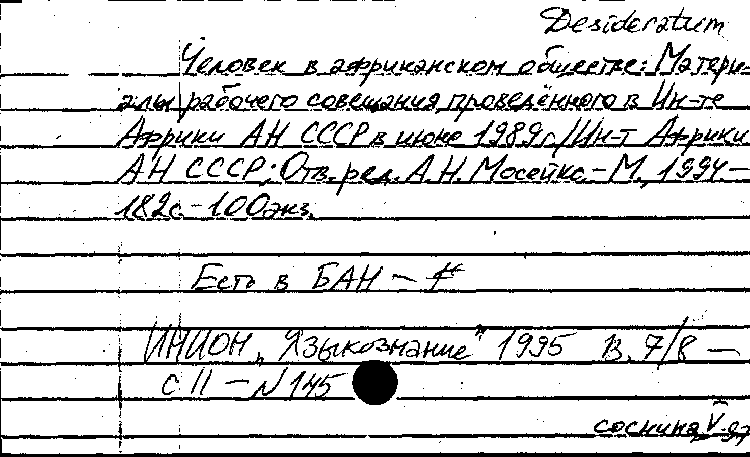 Desideratum
Человек в африканском обществе: Матери-
алы рабочего совещания, проведённого в Ин-те
Африки АН СССР в июне 1989г./Ин-т Африки
АН СССР; Отв. ред. А.Н. Мосейко.-М., 1994.-
182с.-100экз.
Есть в БАН —
ИНИОН „Языкознание" 1995 В. 7/8 —
с 11 — N 145
соснина V-97